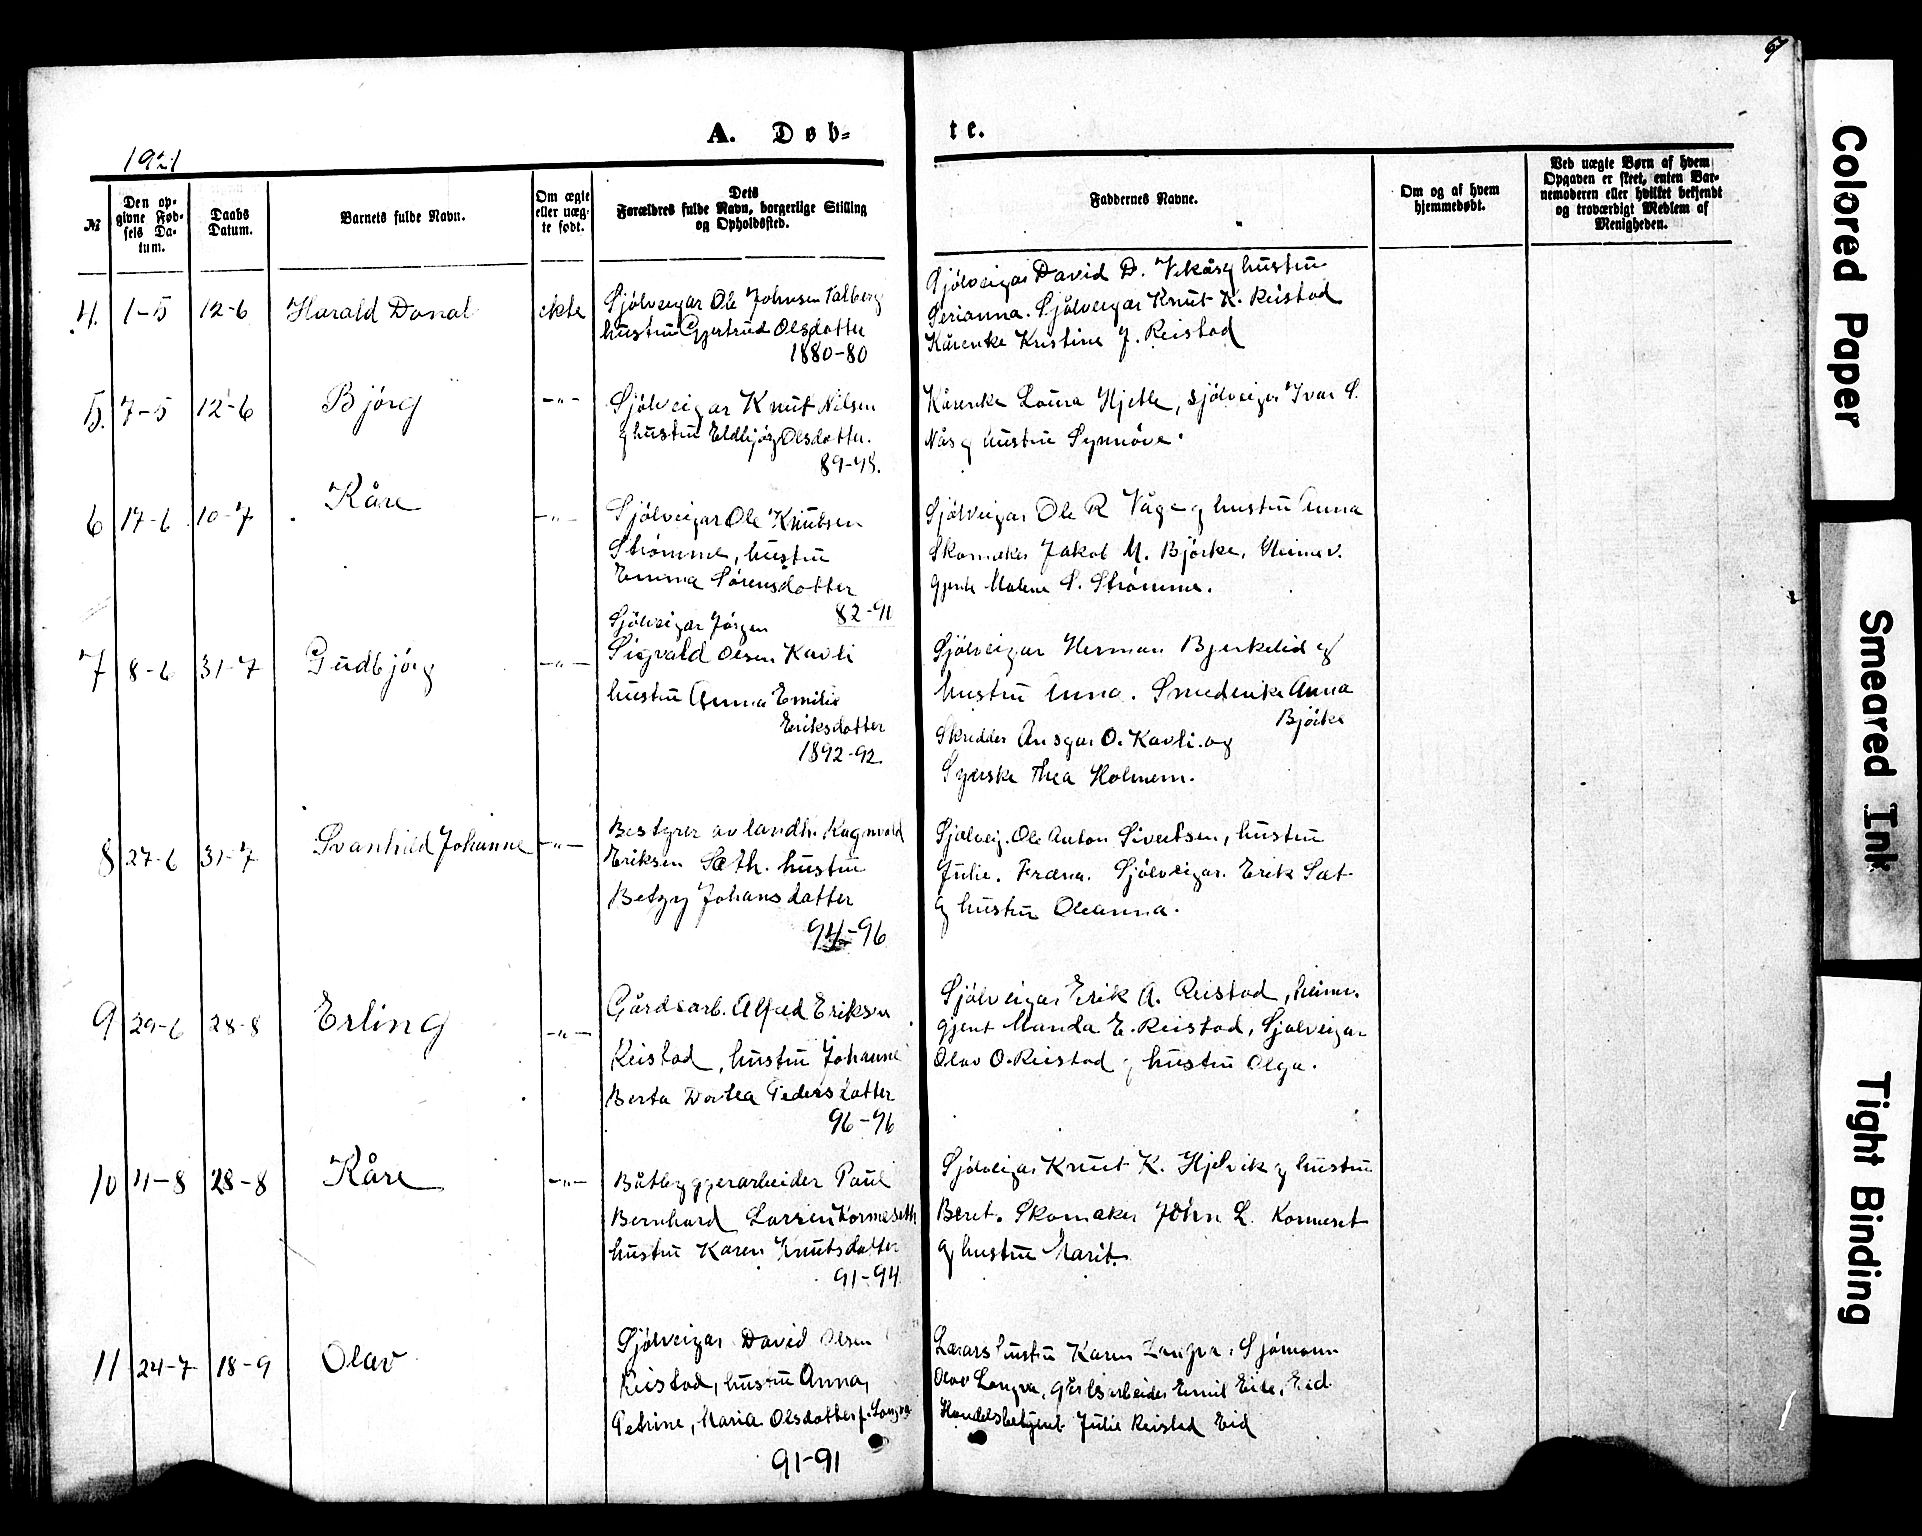 A. Døb-
te.
1921
№
Den op-
givne Fød-
sels Da-
tum.
Daabs
Datum.
Barnets fulde Navn.
Om ægte
eller uæg-
te født.
Dets
Forældres fulde Navn, borgerlige Stilling
og Opholdssted.
Faddernes Navne.
Om og af hvem
hjemmedøbt.
Ved uægte Børn af hvem
Opgaven er skeet, enten Bar-
nemoderen eller hvilket bekjendt
og troværdigt Medlem af
Menigheden.
4. 1-5 12-6 Harald Donat ekte
Sjølveigar Ole Johnsen Talberg
hustru Gjertrud Olsdotter
1880-80
Sjølveigar David D. Vikås og hustru
Serianna. Sjølveigar Knut K. Reistad
Kårenke Kristine J. Reistad
5. 7-5 12-6 Bjørg -"-
Sjølveigar Knut Nilsen
og hustru Eldbjørg Olsdotter.
89-98.
Kårenke Laura Hjelle, sjølveigar Ivar S.
Nås og hustru Synnøve.
6 17-6 10-7 Kåre -"-
Sjølveigar Ole Knutsen
Strømme, hustru
Emma Sørensdotter
82-91
Sjølveigar Ole R Våge og hustru Anna
Skomaker Jakob M. Bjørke, Heimev.
gjente Malene S. Strømme.
7 8-6 31-7 Gudbjørg -"-
Sjølveigar Jørgen
Sigvald Olsen Kavli
hustru Anna Emilie
Eriksdotter
1892-92.
Sjølveigar Herman Bjerkelid og
hustru Anna. Smedenke Anna
Bjørke
Skredder Ansgar O. Kavli og
Syerske Thea Holmem.
8 27-6 31-7 Svanhild Johanne -"-
Bestyrer av landh. Ragnvald
Eriksen Sæth. hustru
Betzy Johansdatter
94-96
Sjølveig. Ole Anton Sivertsen, hustru
Julie. Fræna. Sjølveigar. Erik Sæt
og hustru Oleanna.
9 29-6 28-8 Erling -"-
Gårdsarb. Alfred Eriksen
Reistad, hustru Johanne
Berta Dortea Pedersdatter
96-96
Sjølveigar Erik A. Reistad, heimv.
gjent Manda E. Reistad, Sjølveigar
Olav O. Reistad og hustru Olga.
10 4-8 28-8 Kåre -"-
Båtbyggerarbeider Paul
Bernhard Larsen Kormeseth
hustru Karen Knutsdatter
91-94
Sjølveigar Knut K. Hjelvik og hustru
Beret. Skomaker John L. Kormeset
og hustru Marit.
11 24-7 18-9 Olav
Sjølveigar David Olsen
Reistad, hustru Anna,
Petrine, Maria Olsdotter f. Longva
91-91
Lærarshustru Karen Longva. Sjømann
Olav Longva, gårdsarbeider Emil Eide, Eid
Handelsbetjent Julie Reistad Eid
Colored Paper
Smeared Ink
Tight Binding